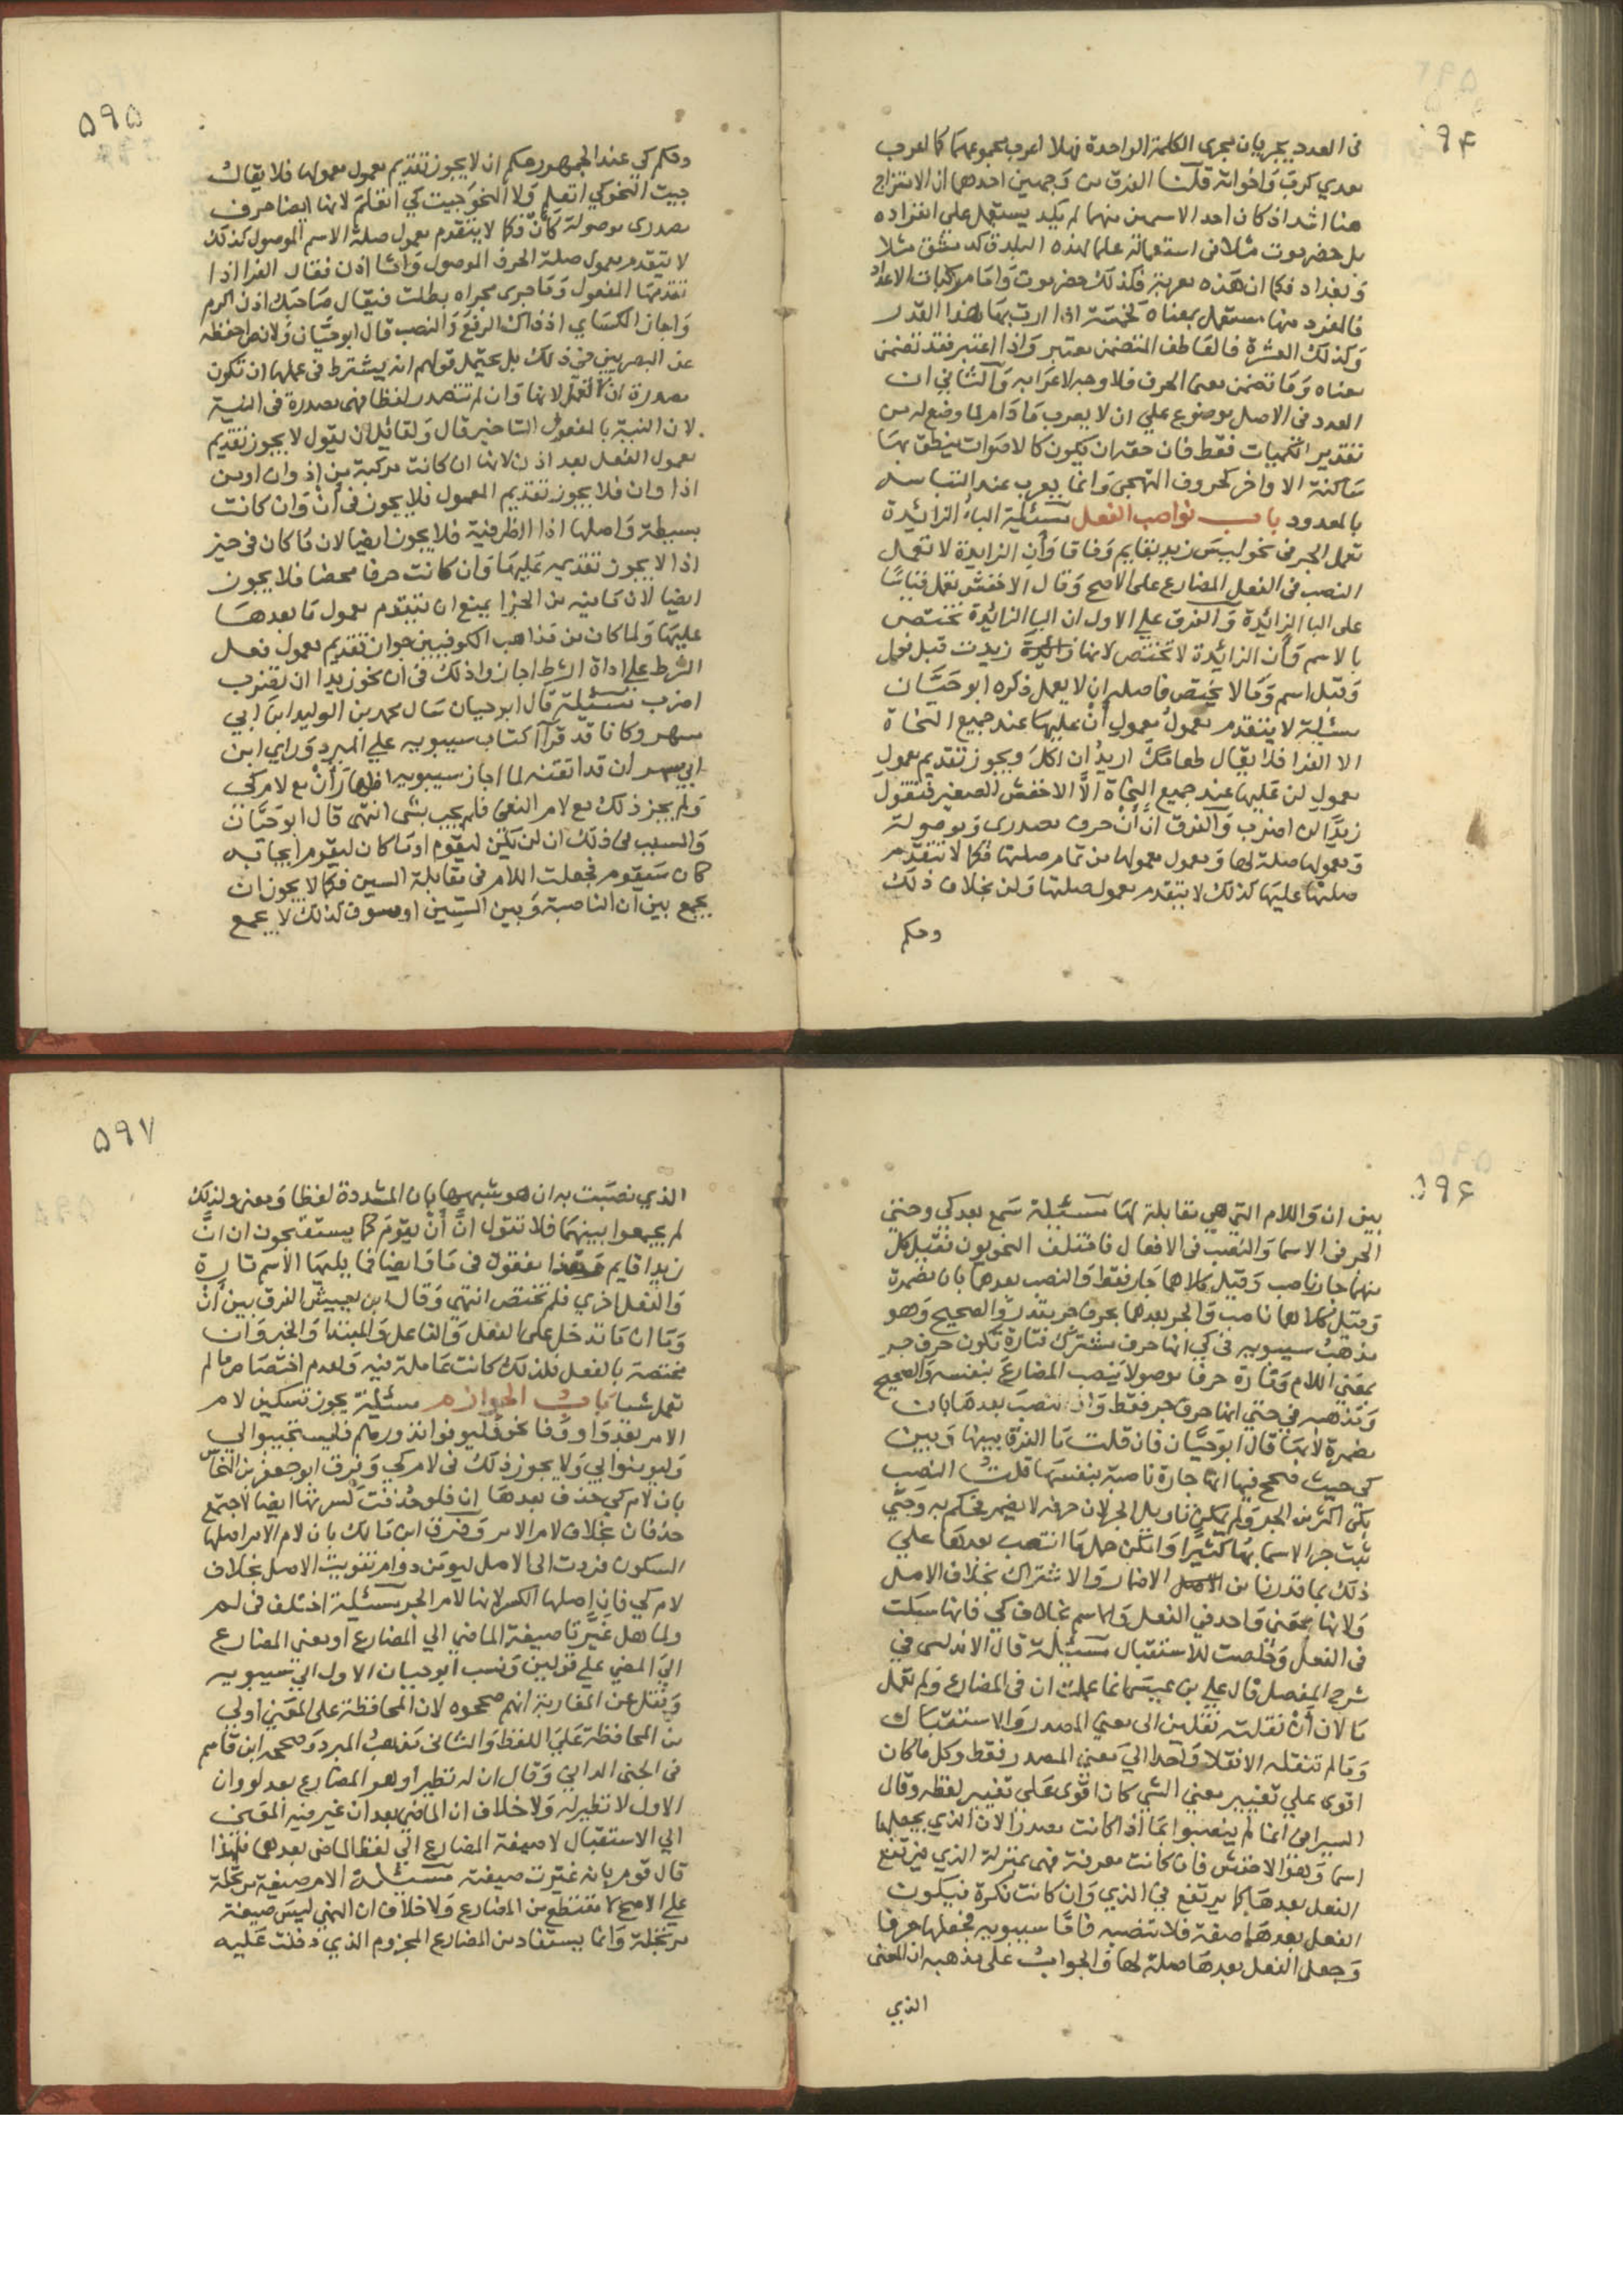 ۵۹۴
فى العدد يجريان مجرى الكلمة الواحدة فهلا اعرب مجموعهما كما اعرب
معدي كرب وَاخواته قلنا الفرق من وَجهين احدهما ان الامتزاج
هنا اشد اذ كان احد الاسمين منهما لم يكد يستعمل على انفراده
بل حضرموت مثلا فى استعماله علما لهذه البلدة كدمشق مثلا
وَبغداد فكما ان هَذه معربة فكذلك حضرموت وَامَا مركبات الاعداد
فالمفرد منها مستعمل بمعناه كخمسة اذا اردت بهَا هذا القدر
وَكذلك العشرة فالعَاطف المتضمن معتبر وَاذا اعتبر فقد تضمن
معناه وَمَا تضمن معنى الحرف فلا وجه لاعرَابه وَالثاني ان
العدد فى الاصل موضوع علي ان لا يعرب مَا دَام لما وضع له من
تقدير الكميات فقط فان حقه ان يكون كالاصوَات ينطق بهَا
سَاكنة الاواخر كحروف التهجى وَانما يعرب عند التباسه
بالمعدود باب نواصب الفعل مسئلة الباء الزائدة
تعمل الجر فى نحو ليسَ زيد بقايم وَفاقا وَأن الزايدة لا تعمل
النصب فى الفعل المضارع على الاصح وَقال الاخفش تعمل قياسًا
على البا الزائدة وَالفرق علي الاول ان البا الزائدة تختص
بالاسم وَأن الزائدة لا تختص لانها زائدة زيدت قبل فعل
وَقبل اسم وَمَا لا يختص فاصله ان لا يعمل ذكره ابو حَيَّان
مسئلة لا يتقدم معمولُ معمولِ أَنْ عليهَا عند جميع النحَاة
الا الفرا فلا يقال طعامَكَ اريدُ ان اكلَ ويجوز تقديم معمول
معمول لن عَليهَا عند جميع النحَاة الاَّ الاخفش الصغير فتقول
زيدًا لن اضرب وَالفرق انَّ أَنْ حرف مصدرى وَموصولة
وَمعمولها صلة لها وَمعمول معمولها من تمام صلتها فكما لا تتقدم
صلتهَا عليهَا كذلك لا يتقدم معمول صلتها وَلن بخلاف ذلك
وحكم
۵۹۵
وحكم كي عند الجمهور حكم ان لا يجوز تقديم معمول معمولها فلا يقال
جيت النحو كي اتعلم وَلا النحوَ جيت كي اتعلمَ لانها ايضا حرف
مصدرى موصولة كَأَنْ فكما لا يتقدم معمول صلة الاسم الموصول كذلك
لا يتقدم معمول صلة الحرف الموصول وَامّا اذن فقال الفرا اذا
تقدمهَا المفعول وَمَا جرى مجراه بطلت فيقال صَاحبك اذن اكرم
وَاجاز الكسَاي اذ ذاك الرفعَ وَالنصب قال ابو حَيَّان وَلا نص احفظه
عن البصريين فى ذلك بل يحتمل قولهم انه يشترط فى عملها ان تكون
مصدرة ان لا تعمل لانها وَان لم تتصدر لفظا فهى مصدرة فى النية
لان النية بالمفعول التاخير قال وَلقائل ان يقول لا يجوز تقديم
معمول الفعل بعد اذن لانها ان كانت مركبة من إذ وان او من
اذا وان فلا يجوز تقديم المعمول فلا يجوز فى أَنْ وَان كانت
بسيطة وَاصلها اذا الظرفية فلا يجوز ايضا لان مَا كان فى حيز
اذا لا يجوز تقديمه عَليهَا وَان كانت حرفا محضا فلا يجوز
ايضا لان مَا فيه من الجزا يمنع ان يتقدم معمول مَا بعدهَا
عليهَا وَلما كان من مَذاهب الكوفيين جوان تقديم معمول فعل
الشرط علي اداة الشرط اجازوا ذلك فى ان نحو زيدا ان تضرب
اضرب مسئلة قَال ابو حيان سَال محمد بن الوليد ابنَ ابي
مسهر وكانا قد قرآ كتاب سيبويه علي المبرد وَراي ابن
ابي مسهر ان قد اتقنه لما اجاز سيبويه اظهَارَ أَنْ مع لام كي
وَلم يجز ذلك مع لام النفى فلم يجب بشى انتهى قال ابو حَيَّان
وَالسبب فى ذلك ان لن يكن ليقوم او مَا كان ليقوم ايجابه
كان سَيقوم فجعلت اللام فى مقابلة السين فكما لا يجوز ان
يجمع بين ان الناصبة وَبين السِّين او سوف كذلك لا يجمع
۵۹۶
بين ان وَاللام التي هي مقابلة لهَا مسئلة سَمع بعد كي وحتي
الجر فى الاسما وَالنصبُ فى الافعال فاختلف النحويون فقيل كل
منهمَا جار ناصب وَقيل كلاهما جَار فقط وَالنصب بعدهما بان مضمرة
وَقيل كلاهما ناصب وَالجر بعدهما بحرف جر مقدر وَالصحيح وَهو
مذهبُ سيبويه فى كي انها حرف مشترك فتارة تكون حرف جر
بمعَني اللام وَتارة حرفا موصولا ينصب المضارعَ بنفسه وَالصحيح
وَمَذهبه في حتي انها حرف جر فقط وَان نصبَ بعدهَا بان
مضمرة لا بهَا قال ابو حَيَّان فان قلت مَا الفرق بينها وَبين
كي حيث صحح فيها انها جارة ناصبة بنفسهَا قلتُ النصب
بكى اكثر من الجر وَلم يمكن تاويل الجر لان حرفه لا يضمر فحكم به وَحتي
ثبت جر الاسما بهَا كثيرًا وَامكن حملهَا انتصب بعدهَا علي
ذلك بما قدرنا من الاضمار وَالاشتراك بخلاف الاصل
وَلانها بمعَني وَاحد في الفعل وَالاسم بخلاف كي فانها سبكت
فى الفعل وَخلصت للاستقبال مسئلة قال الاندلسى في
شرح المفصل قال علي بن عيسَى انما عملت ان فى المضارع وَلم تعمل
مَا لان أَنْ نقلته نقلين الى معني المصدر وَالاستقبَال
وَمَا لم تنقله الا نقلا وَاحدا الي معني المصدر فقط وكل ما كان
اقوى علي تغيير معني الشي كان اقوى عَلى تغيير لفظه وقال
السيرافى انما لم ينصبوا بمَا اذا كانت مصدرا لان الذي يجعلها
اسما وَهوَ الاخفش فان كانت معرفة فهى بمنزلة الذي فيرتفع
الفعل بعدهَا كما يرتفع في الذي وَان كانت نكرة فيكون
الفعل بعدهَا صفة فلا تنصبه فامَّا سيبويه فجعلها حرفا
وَجعل الفعل بعدهَا صلة لها وَالجوابُ على مذهبه ان المعنى
الذي
۵۹۷
الذي نصَبَت به ان هو شبهها بان المشددة لفظا وَمعنى ولذلك
لم يجمعوا بينهمَا فلا تقول انَّ أَنْ يقومَ كما يستقبحون ان انَّ
زيدا قايم وَهذا مفقود فى مَا وَايضا فما يليهَا الاسم تارة
وَالفعل اخري فلم تختص انتهى وَقال ابن يعيش الفرق بين أَنْ
وَمَا ان مَا تدخل على الفعل وَالفاعل وَالمبتدا وَالخبر وَان
مختصة بالفعل فلذلك كانت عَاملة فيه وَلعدم اختصَاص ما لم
تعمل شيا بَاب الجوازم مسئلة يجوز تسكين لام
الامر بعد وَاو وَفا نحو وَليوفوا نذورهم فليستجيبوا لي
وَليومنوا بي وَلا يجوز ذلك فى لام كي وَفرق ابو جعفر بن النحاس
بان لام كي حذف بعدهَا ان فلو حُذفت كسرتها ايضا لاجتمع
حذفان بخلاف لام الامر وَفرق ابن مَالك بان لام الامر اصلها
السكون فردت الى الاصل ليومَن دوام تفويت الاصل بخلاف
لام كي فان اصلها الكسر لانها لام الجر مسئلة اختلف فى لم
ولما هل غيَّرتا صيغة الماضي الي المضارع او معنى المضارع
الي المضي على قولين وَنسب ابو حيان الاول الي سيبويه
وَنقل عن المغاربة انهم صححوه لان المحافظة على المعَني اولى
من المحافظة عَلى اللفظ وَالثانى مَذهبُ المبرد وَصححه ابن قاسم
فى الجنى الداني وَقال ان له نظيرا وهو المضارع بعد لو وان
الاول لا نظير له وَلا خلاف ان الماضي بعد ان غير فيه المعَنى
الي الاستقبال لا صيغة المضارع الي لفظ الماضى بعدهما فلهذا
قال قوم بانه غيرت صيغته مسئلة الامر صيغة مرتجلة
علي الاصح لا مقتطع من المضارع وَلا خلاف ان النهي ليسَ صيغة
مرتجلة وَانما يستفاد من المضارع المجزوم الذي دخلت عَليه